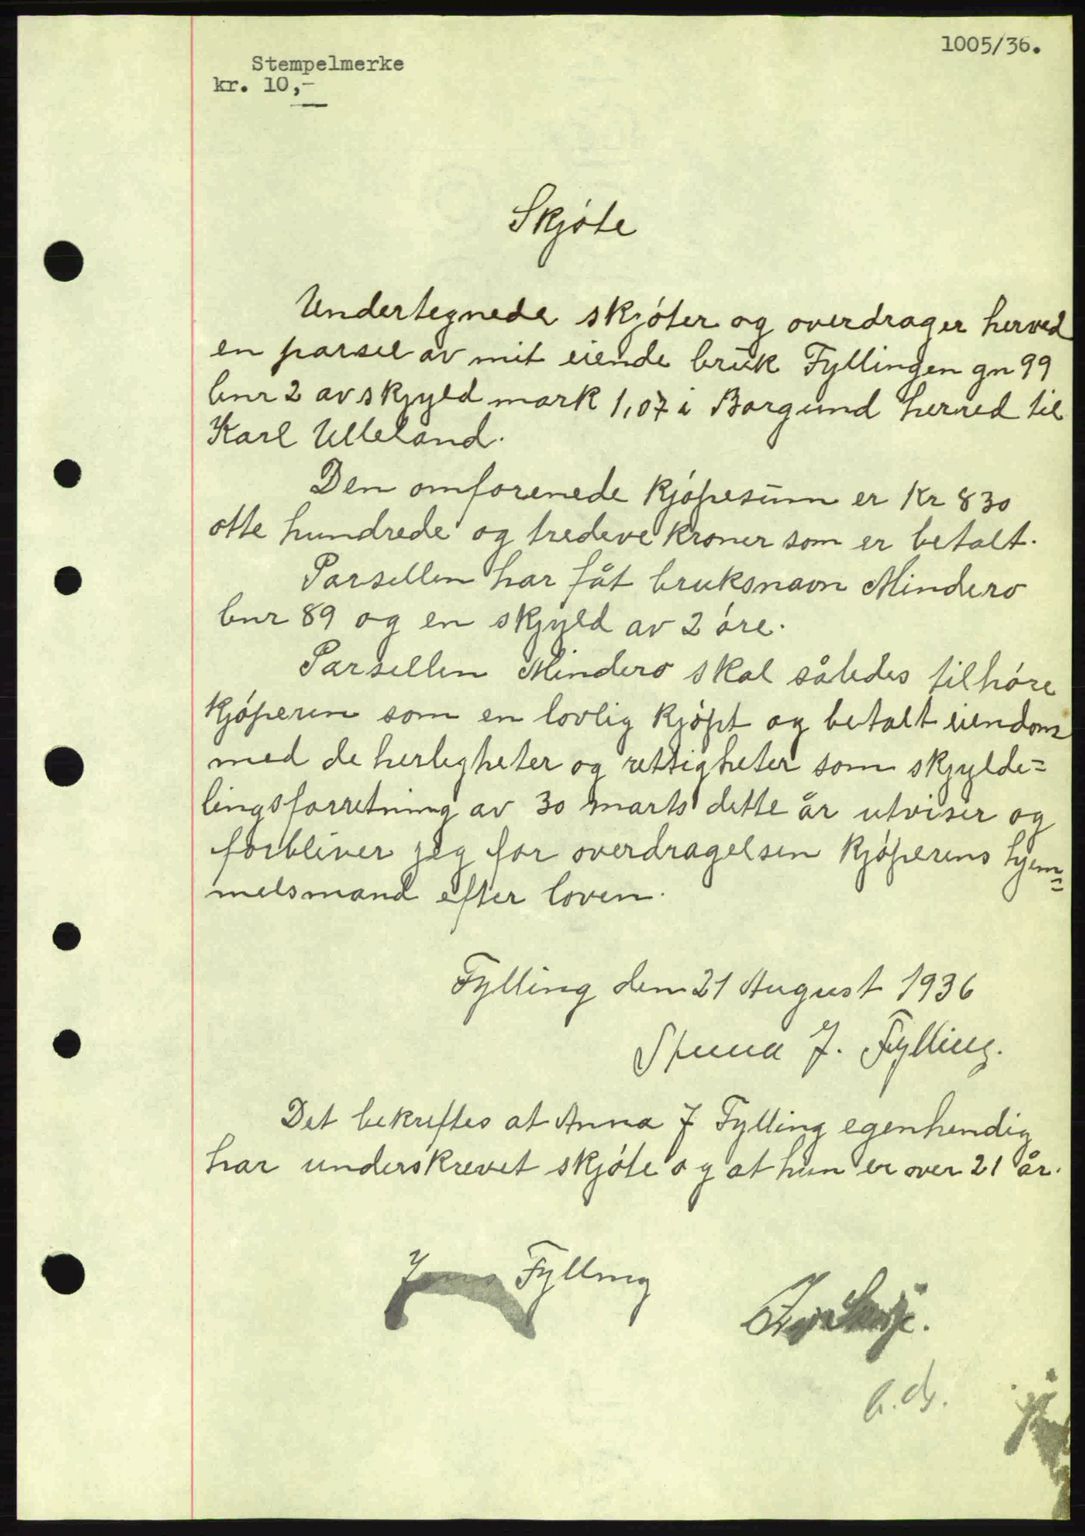 1005/36.
Stempelmerke
kr. 10,-
Skjóte
Undertegnede skjóter og overdrager herved
en parsel av mit eiende bruk Fyllingen gn 99
bnr 2 av skjyld mark 1,07 i Borgund herred til
Karl Ulleland.
Den omforenede kjópesum er Kr 830
otte hundrede og tredeve kroner som er betalt.
Parsellen har fåt bruksnavn Mindero
bnr 89 og en skjyld av 2 óre.
Parsellen Mindero skal således tilhóre
kjóperen som en lovlig kjópt og betalt eiendom
med de herligheter og rettigheter som skjylde=
lingsforretning av 30 marts dette år utviser og
forbliver jeg for overdragelsen kjóperens hjem=
melsmand efter loven.
Fylling den 21 August 1936
Anna J. Fylling.
Det bekreftes at Anna J Fylling egenhendig
har underskrevet skjóte og at hun er over 21 år.
Jens Fylling